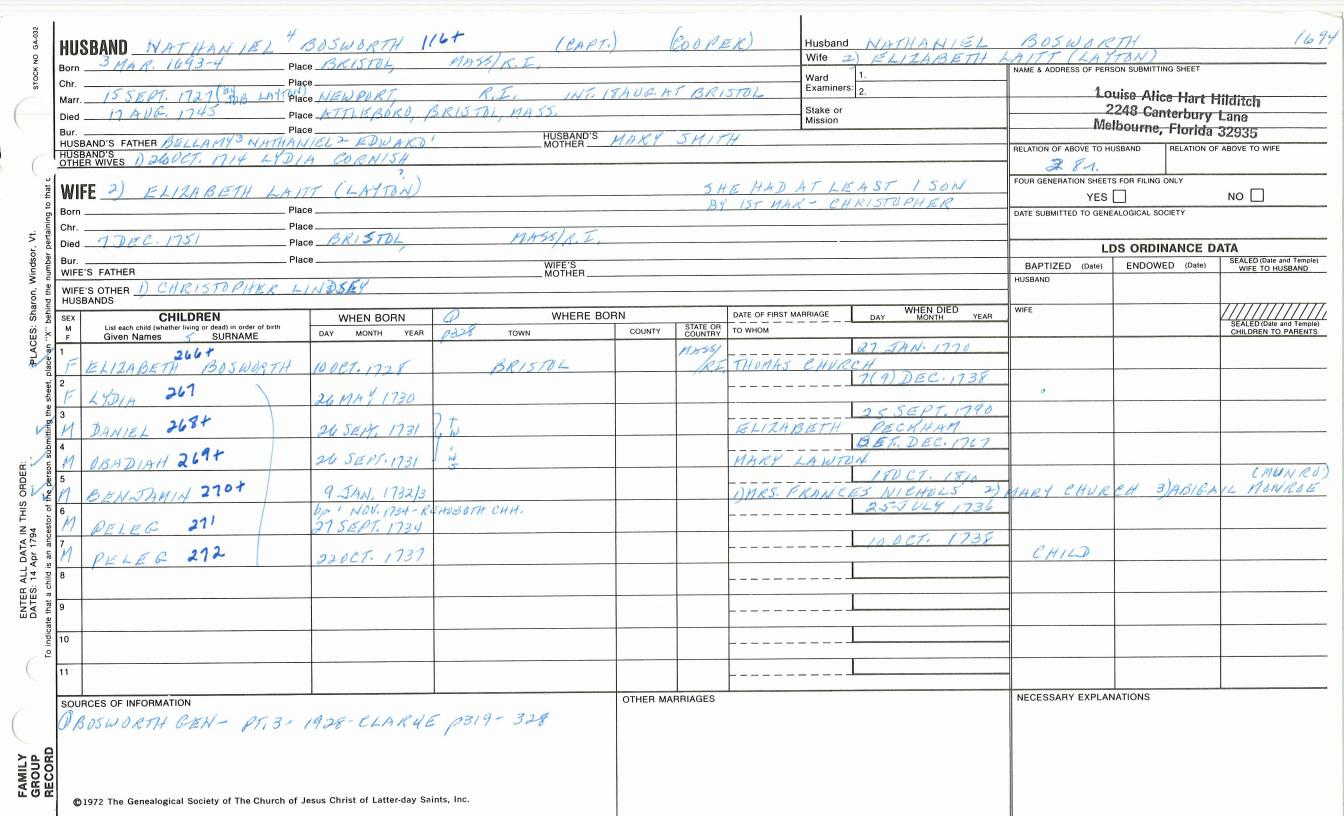 STOCK NO. GA-032
HUSBAND NATHANIEL 4 BOSWORTH 116+ (CAPT.) (COOPER)
Born 3 MAR. 1693-4 Place BRISTOL, MASS/R.I.
Chr. Place
Marr. 15 SEPT. 1727 LAYTON) Place NEWPORT R.I. INT. 18 AUG AT BRISTOL
Died 17 AUG. 1745 Place ATTLEBORO, BRISTOL, MASS.
Bur. Place
HUSBAND'S FATHER BELLAMY3 NATHANIEL2 EDWARD1 HUSBAND'S MOTHER MARY SMITH
HUSBAND'S OTHER WIVES 1) 26 OCT. 1714 LYDIA CORNISH
Husband NATHANIEL BOSWORTH 1694
Wife 2) ELIZABETH LAITT (LAYTON)
Ward Examiners: 1.
2.
Stake or Mission
NAME & ADDRESS OF PERSON SUBMITTING SHEET
Louise Alice Hart Hilditch
2248 Canterbury Lane
Melbourne, Florida 32935
RELATION OF ABOVE TO HUSBAND RELATION OF ABOVE TO WIFE
FOUR GENERATION SHEETS FOR FILING ONLY
YES NO
DATE SUBMITTED TO GENEALOGICAL SOCIETY
?
WIFE 2) ELIZABETH LAITT (LAYTON) SHE HAD AT LEAST 1 SON
BY 1ST MAR- CHRISTOPHER
Born Place
Chr. Place
Died 7 DEC. 1751 Place BRISTOL, MASS/R.I.
Bur. Place
WIFE'S FATHER WIFE'S MOTHER
WIFE'S OTHER HUSBANDS 1) CHRISTOPHER LINDSEY
LDS ORDINANCE DATA
BAPTIZED (Date) ENDOWED (Date) SEALED (Date and Temple) WIFE TO HUSBAND
HUSBAND
WIFE
SEALED (Date and Temple) CHILDREN TO PARENTS
SEX M F CHILDREN
List each child (whether living or dead) in order of birth
Given Names 5 SURNAME
WHEN BORN
DAY MONTH YEAR
p328
WHERE BORN
TOWN COUNTY STATE OR COUNTRY
DATE OF FIRST MARRIAGE
TO WHOM
WHEN DIED
DAY MONTH YEAR
1 266+ MASS/ 27 JAN. 1770
F ELIZABETH BOSWORTH 10 OCT. 1728 BRISTOL RI THOMAS CHURCH
2 7(9) DEC. 1738
F LYDIA 267 26 MAY 1730
3 25 SEPT. 1790
M DANIEL 268+ 26 SEPT. 1731 ELIZABETH PECKHAM
4 BET. DEC. 1767
M OBADIAH 269+ 26 SEPT. 1731 MARY LAWTON
5 18 OCT. (MUNRO)
M BENJAMIN 270+ 9 JAN. 1732/3 1) MRS. FRANCES NICHOLS 2) MARY CHURCH 3) ABIGAIL MONROE
6 bp 1 NOV. 1734 - REHOBOTH CHH. 25 JULY 1736
M PELEG 271 27 SEPT. 1734
7 10 OCT. 1738
M PELEG 272 22 OCT. 1737 CHILD
8
9
10
11
SOURCES OF INFORMATION
① BOSWORTH GEN- PT. 3 - 1928 - CLARKE p319 - 328
OTHER MARRIAGES
NECESSARY EXPLANATIONS
©1972 The Genealogical Society of The Church of Jesus Christ of Latter-day Saints, Inc.
FAMILY GROUP RECORD
ENTER ALL DATA IN THIS ORDER:
DATES: 14 Apr 1794
PLACES: Sharon, Windsor, Vt.
To indicate that a child is an ancestor of the person submitting the sheet, place an "X" behind the number pertaining to that c